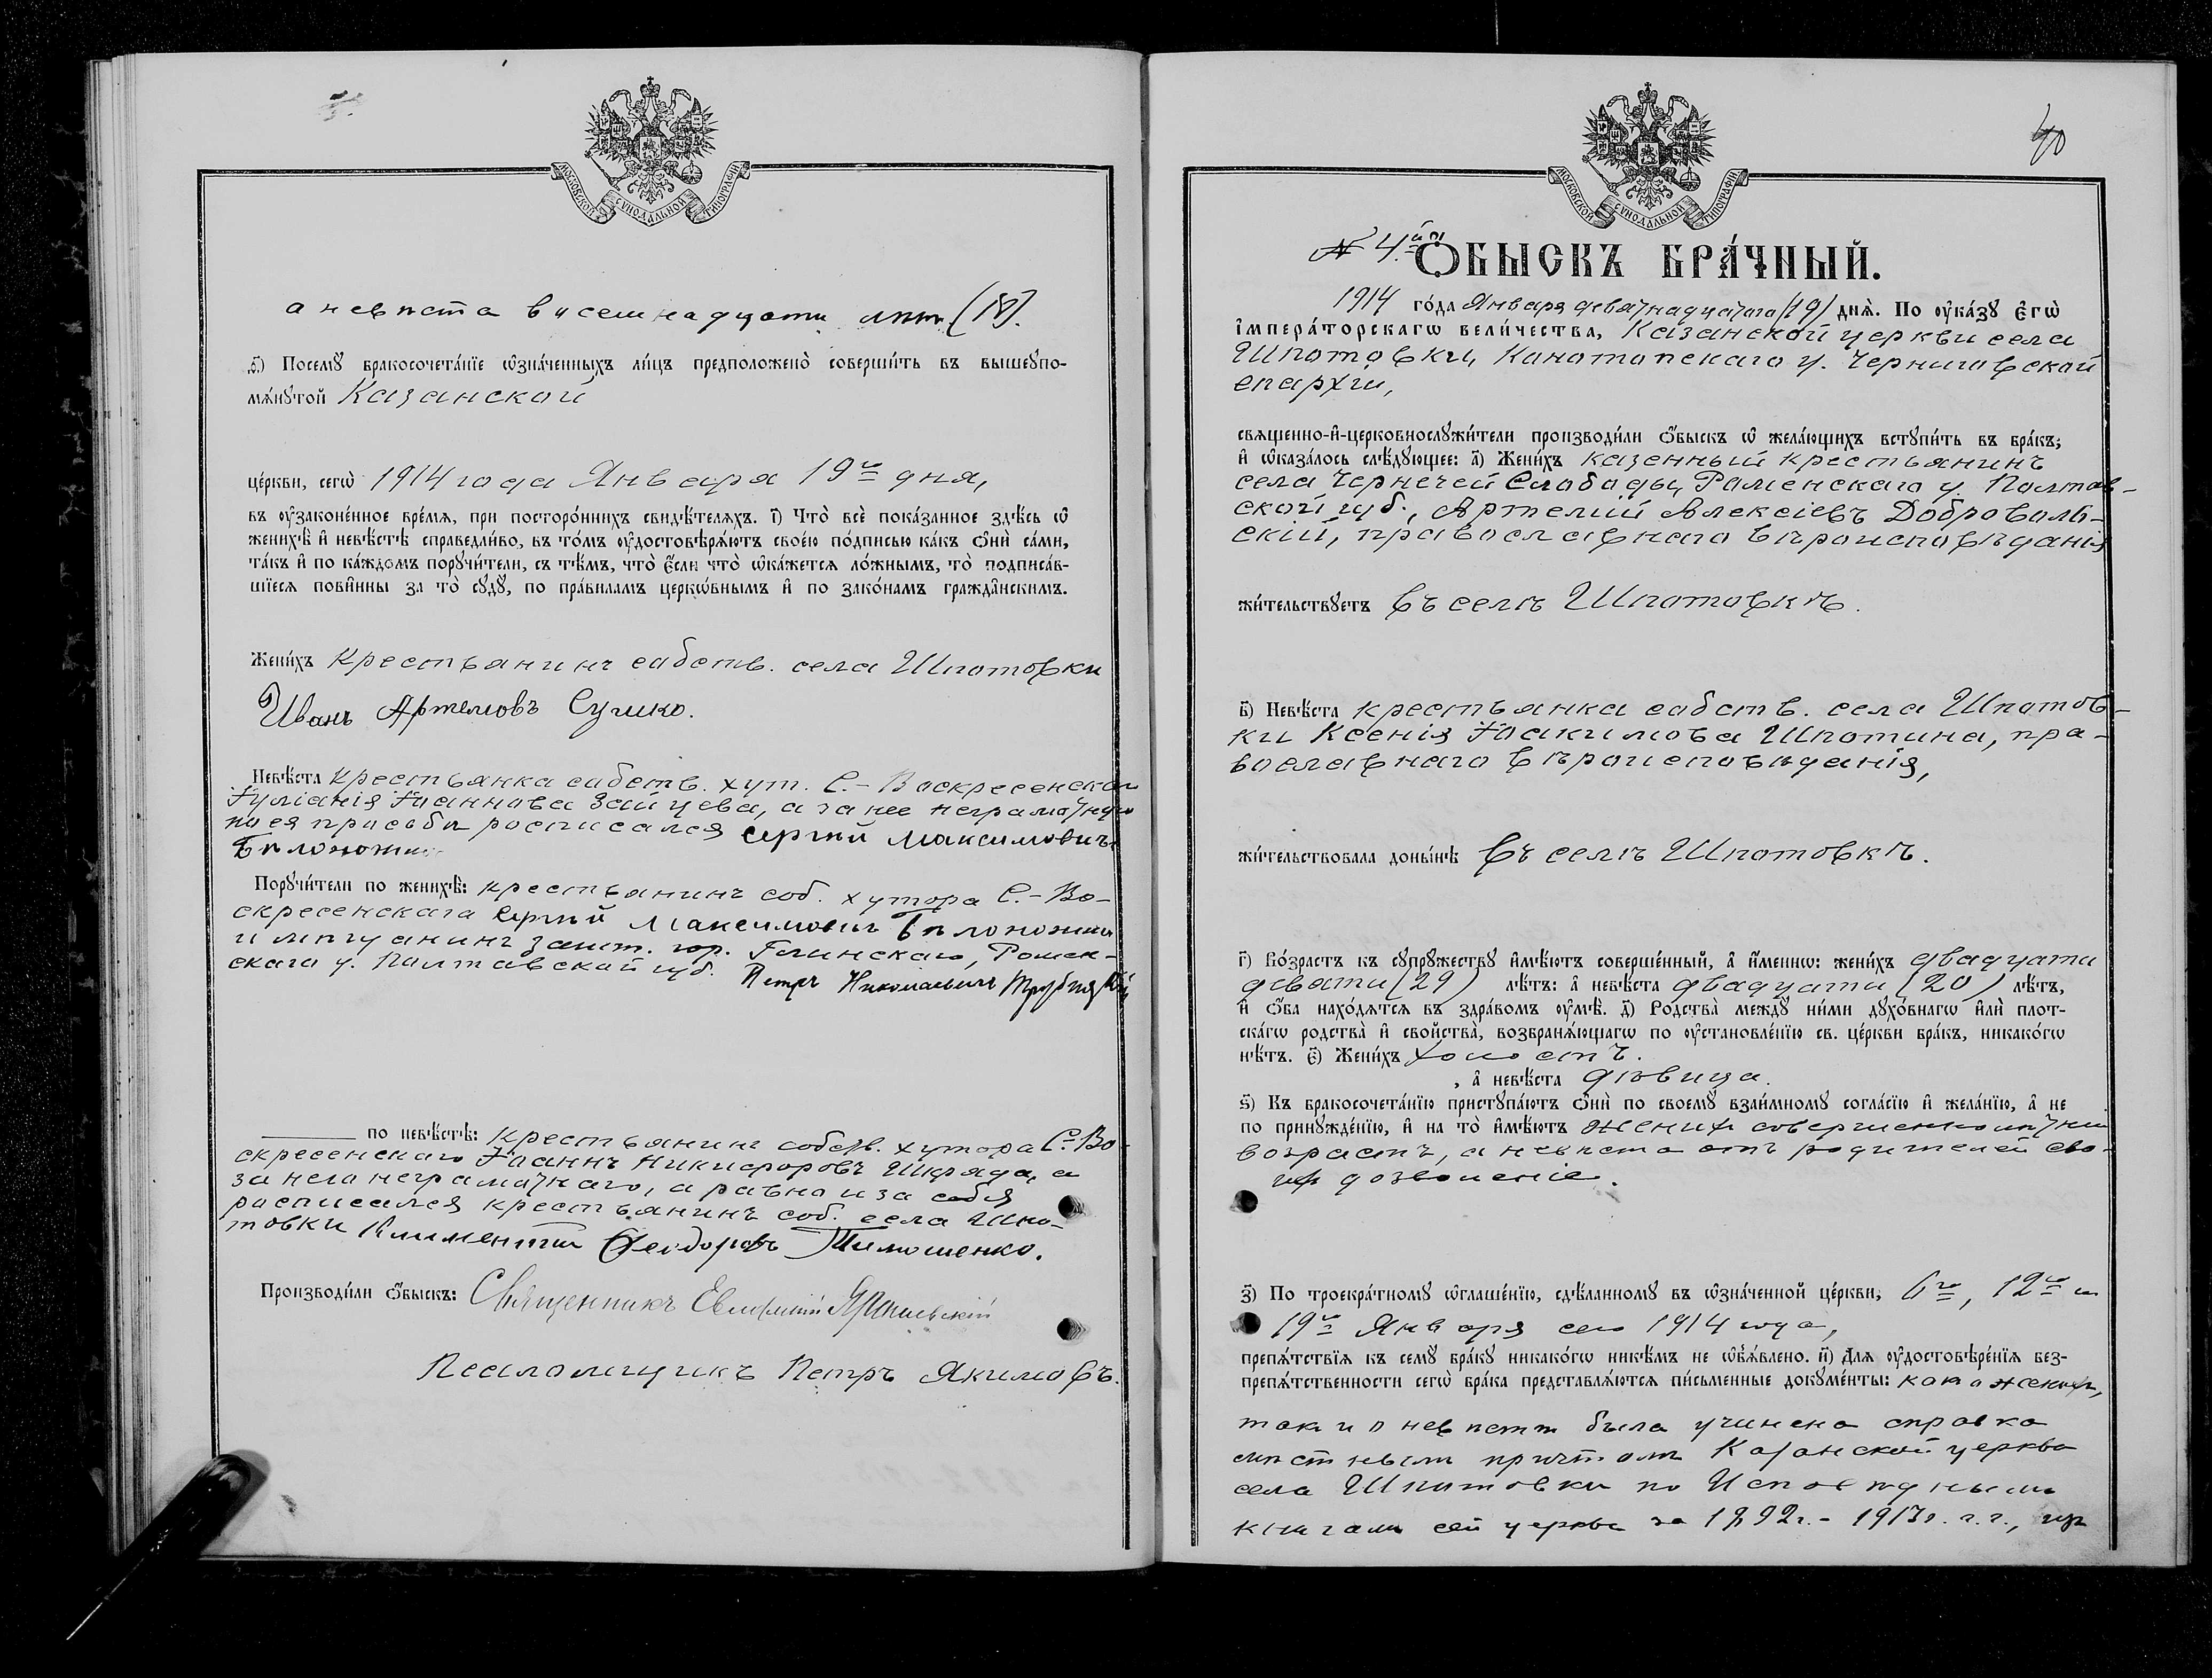 МОСКОВСКОЙ СѴНОДАЛЬНОЙ ТИПОГРАФІИ
а невѣста восемнадцати лѣтъ (18).
д҃і) Посемꙋ̀ бракосочета́нїе ѡ҆зна́ченныхъ ли́цъ предположено̀ соверши́ть въ вышеꙋпо-
мѧ́нꙋтой Казанской
це́ркви, сегѡ̀ 1914 года Января 19го дня,
въ ᲂу҆зако́ненное вре́мѧ, при посторо́ннихъ свидѣ́телѧхъ. г҃і) Что̀ всѐ пока́занное здѣ́сь ѡ҆
женихѣ̀ и҆ невѣ́стѣ справедли́во, въ то́мъ ᲂу҆достовѣрѧ́ютъ свое́ю по́дписью ка́къ ѻ҆нѝ са́ми,
та́къ и҆ по ка́ждомъ порꙋчи́тели, съ тѣ́мъ, что̀ є҆́сли что̀ ѡ҆ка́жетсѧ ло́жнымъ, то̀ подписа́в-
шїесѧ пови́нны за то̀ сꙋдꙋ̀, по пра́виламъ церкѡ́внымъ и҆ по зако́намъ гражда̂нскимъ.
Жени́хъ крестьянинъ собств. села Шпотовки
Иванъ Артемовъ Сушко.
Невѣ́ста крестьянка собств. хут. С.-Воскресенскаго
Іуліанія Іоаннова Зайцева, а за нее неграмотную
по ея просьбѣ росписался Сергѣй Максимовичъ
Бѣлоножко
Порꙋчи́тели по женихѣ̀: крестьянинъ соб. хутора С.-Во-
скресенскаго Сергѣй Максимовичъ Бѣлоножко
и мѣщанинъ зашт. гор. Глинскаго, Ромен-
скаго у. Полтавской губ. Петръ Николаевичъ
по невѣ́стѣ: крестьянинъ собств. хутора С.-Во-
скресенскаго Іоаннъ Никифоровъ Шкряда, а
за него неграмотнаго, а равно и за себя
росписался крестьянинъ соб. села Шпо-
товки Климентій Феодоровъ Тимошенко.
Производи́ли ѻ҆́быскъ: Священникъ Евфимій
Псаломщикъ Петръ Якимовъ.
40
МОСКОВСКОЙ СѴНОДАЛЬНОЙ ТИПОГРАФІИ
№ 4й
Ѻ҆БЫСКЪ БРА́ЧНЫЙ.
1914 го́да Января девятнадцатаго (19) днѧ̀. По ᲂу҆ка́зꙋ є҆гѡ̀
і҆мпера́торскагѡ вели́чества, Казанской церкви села
Шпотовки, Конотопскаго у. Черниговской
епархіи,
свѧщенно-и҆-церковнослꙋжи́тели производи́ли ѻ҆́быскъ ѡ҆ жела́ющихъ встꙋпи́ть въ бра́къ;
и҆ ѡ҆каза́лось слѣ́дꙋющее: а҃) Жени́хъ казенный крестьянинъ
села Чернечей Слободы, Роменскаго у. Полтав-
ской губ., Артемій Алексіевъ Доброволь-
скій, православнаго вѣроисповѣданія
жи́тельствꙋетъ въ селѣ Шпотовкѣ.
в҃) Невѣ́ста крестьянка собств. села Шпотов-
ки Ксенія Іоакимова Шпотина, пра-
вославнаго вѣроисповѣданія,
жи́тельствовала доны́нѣ въ селѣ Шпотовкѣ.
г҃) Во́зрастъ къ сꙋпрꙋ́жествꙋ и҆мѣ́ютъ соверше́нный, а҆ и҆́менно: жени́хъ двадцати
девяти (29) лѣ́тъ: а҆ невѣ́ста двадцати (20) лѣ́тъ,
и҆ ѻ҆́ба нахо́дѧтсѧ въ здра́вомъ ᲂу҆мѣ̀. д҃) Родства̀ междꙋ̀ ни́ми дꙋхо́внагѡ и҆лѝ плот-
ска́гѡ родства̀ и҆ сво́йства̀, возбранѧ́ющагѡ по ᲂу҆становле́нїю св. це́ркви бра́къ, никако́гѡ
нѣ́тъ. є҃) Жени́хъ холостъ.
, а҆ невѣ́ста дѣвица.
ѕ҃) Къ бракосочета́нїю пристꙋпа́ютъ ѻ҆нѝ по своемꙋ̀ взаи́мномꙋ согла́сїю и҆ жела́нїю, а҆ не
по принꙋжде́нїю, и҆ на то̀ и҆мѣ́ютъ женихъ совершеннолѣтній
возрастъ, а невѣста отъ родителей сво-
ихъ дозволеніе.
з҃) По троекра́тномꙋ ѡ҆глаше́нїю, сдѣ́ланномꙋ въ ѡ҆зна́ченной це́ркви, 6го, 12го и
19го Января сего 1914 года,
препѧ́тствїѧ къ семꙋ̀ бра́кꙋ никако́гѡ никѣ́мъ не ѡ҆бъѧ́влено. и҃) Для ᲂу҆достовѣре́нїѧ без-
препѧ́тственности сегѡ̀ бра́ка представлѧ́ютсѧ пи́сьменные докꙋме́нты: какъ о женихѣ,
такъ и о невѣстѣ была учинена справка
мѣстнымъ причтомъ Казанской церкви
села Шпотовки по Исповѣднымъ
книгамъ сей церкви за 1892г.-1913г. г.г., изъ